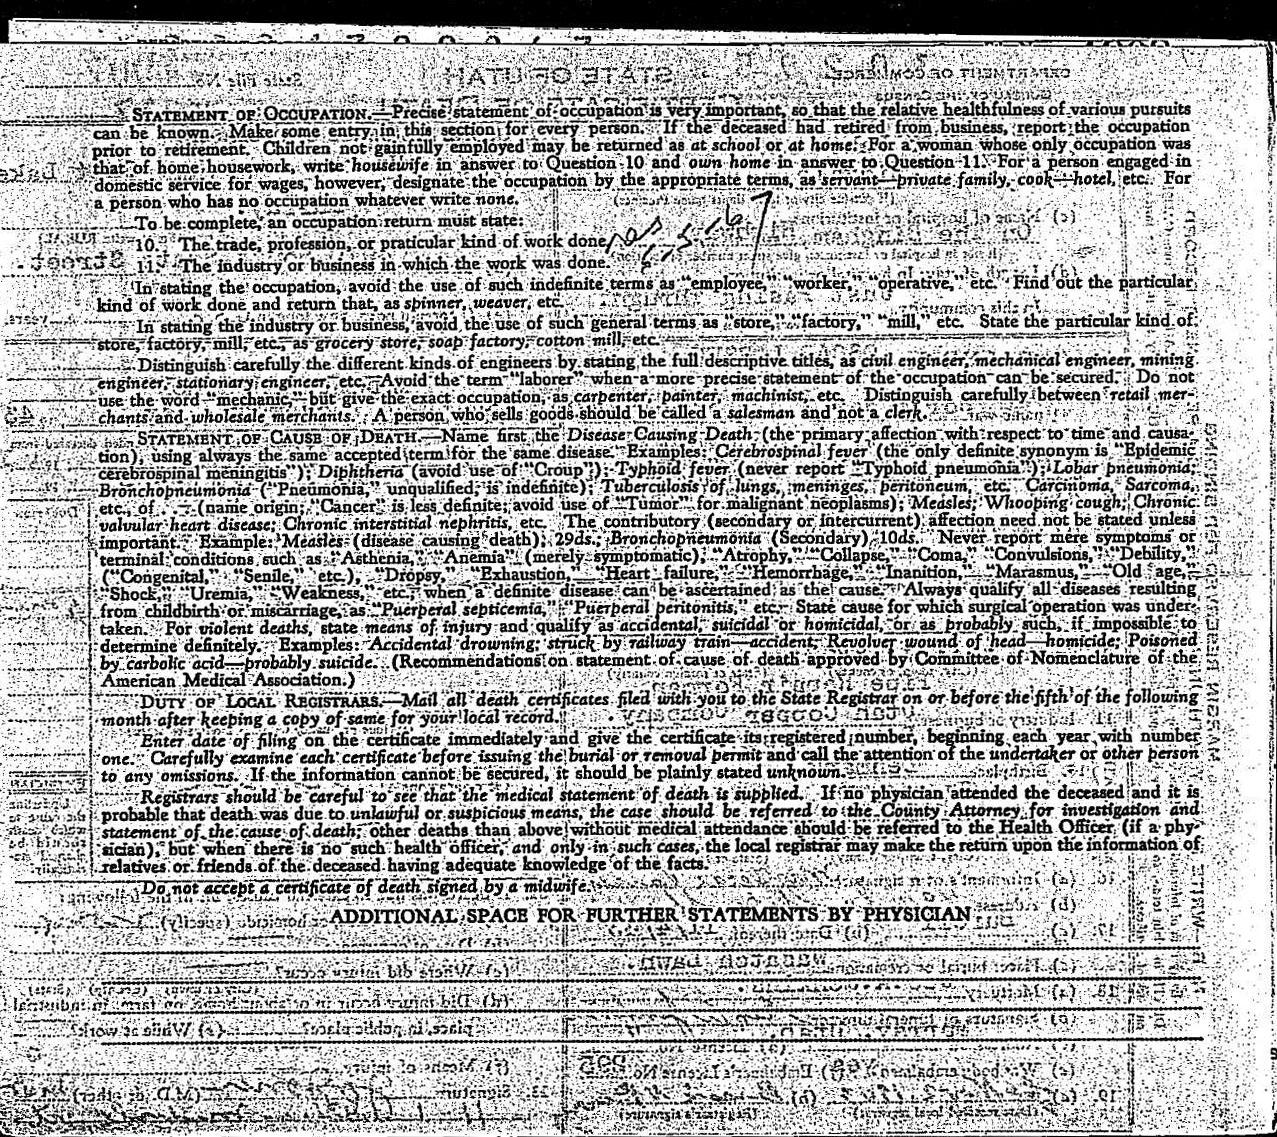 STATEMENT OF OCCUPATION.—Precise statement of occupation is very important, so that the relative healthfulness of various pursuits
can be known. Make some entry in this section for every person. If the deceased had retired from business, report the occupation
prior to retirement. Children not gainfully employed may be returned as at school or at home. For a woman whose only occupation was
that of home housework, write housewife in answer to Question 10 and own home in answer to Question 11. For a person engaged in
domestic service for wages, however, designate the occupation by the appropriate terms, as servant—private family, cook—hotel, etc. For
a person who has no occupation whatever write none.
To be complete, an occupation return must state:
10. The trade, profession, or praticular kind of work done
11. The industry or business in which the work was done.
In stating the occupation, avoid the use of such indefinite terms as "employee," "worker," "operative," etc. Find out the particular
kind of work done and return that, as spinner, weaver, etc.
In stating the industry or business, avoid the use of such general terms as "store," "factory," "mill," etc. State the particular kind of
store, factory, mill, etc., as grocery store, soap factory, cotton mill, etc.
Distinguish carefully the different kinds of engineers by stating the full descriptive titles, as civil engineer, mechanical engineer, mining
engineer, stationary engineer, etc. Avoid the term "laborer" when a more precise statement of the occupation can be secured. Do not
use the word "mechanic," but give the exact occupation, as carpenter, painter, machinist, etc. Distinguish carefully between retail mer-
chants and wholesale merchants. A person who sells goods should be called a salesman and not a clerk.
STATEMENT OF CAUSE OF DEATH.—Name first the Disease Causing Death (the primary affection with respect to time and causa-
tion), using always the same accepted term for the same disease. Examples: Cerebrospinal fever (the only definite synonym is "Epidemic
cerebrospinal meningitis"); Diphtheria (avoid use of "Croup"); Typhoid fever (never report "Typhoid pneumonia"); Lobar pneumonia;
Bronchopneumonia ("Pneumonia," unqualified, is indefinite); Tuberculosis of lungs, meninges, peritoneum, etc. Carcinoma, Sarcoma,
etc., of . . . (name origin; "Cancer" is less definite; avoid use of "Tumor" for malignant neoplasms); Measles; Whooping cough; Chronic
valvular heart disease; Chronic interstitial nephritis, etc. The contributory (secondary or intercurrent) affection need not be stated unless
important. Example: Measles (disease causing death), 29ds.; Bronchopneumonia (Secondary), 10ds. Never report mere symptoms or
terminal conditions such as "Asthenia," "Anemia" (merely symptomatic), "Atrophy," "Collapse," "Coma," "Convulsions," "Debility,"
("Congenital," "Senile," etc.), "Dropsy," "Exhaustion," "Heart failure," "Hemorrhage," "Inanition," "Marasmus," "Old age,"
"Shock," "Uremia," "Weakness," etc., when a definite disease can be ascertained as the cause. Always qualify all diseases resulting
from childbirth or miscarriage, as "Puerperal septicemia," "Puerperal peritonitis," etc. State cause for which surgical operation was under-
taken. For violent deaths, state means of injury and qualify as accidental, suicidal or homicidal, or as probably such, if impossible to
determine definitely. Examples: Accidental drowning; struck by railway train—accident; Revolver wound of head—homicide; Poisoned
by carbolic acid—probably suicide. (Recommendations on statement of cause of death approved by Committee of Nomenclature of the
American Medical Association.)
DUTY OF LOCAL REGISTRARS.—Mail all death certificates filed with you to the State Registrar on or before the fifth of the following
month after keeping a copy of same for your local record.
Enter date of filing on the certificate immediately and give the certificate its registered number, beginning each year with number
one. Carefully examine each certificate before issuing the burial or removal permit and call the attention of the undertaker or other person
to any omissions. If the information cannot be secured, it should be plainly stated unknown.
Registrars should be careful to see that the medical statement of death is supplied. If no physician attended the deceased and it is
probable that death was due to unlawful or suspicious means, the case should be referred to the County Attorney for investigation and
statement of the cause of death; other deaths than above without medical attendance should be referred to the Health Officer (if a phy-
sician), but when there is no such health officer, and only in such cases, the local registrar may make the return upon the information of
relatives or friends of the deceased having adequate knowledge of the facts.
Do not accept a certificate of death signed by a midwife.
ADDITIONAL SPACE FOR FURTHER STATEMENTS BY PHYSICIAN